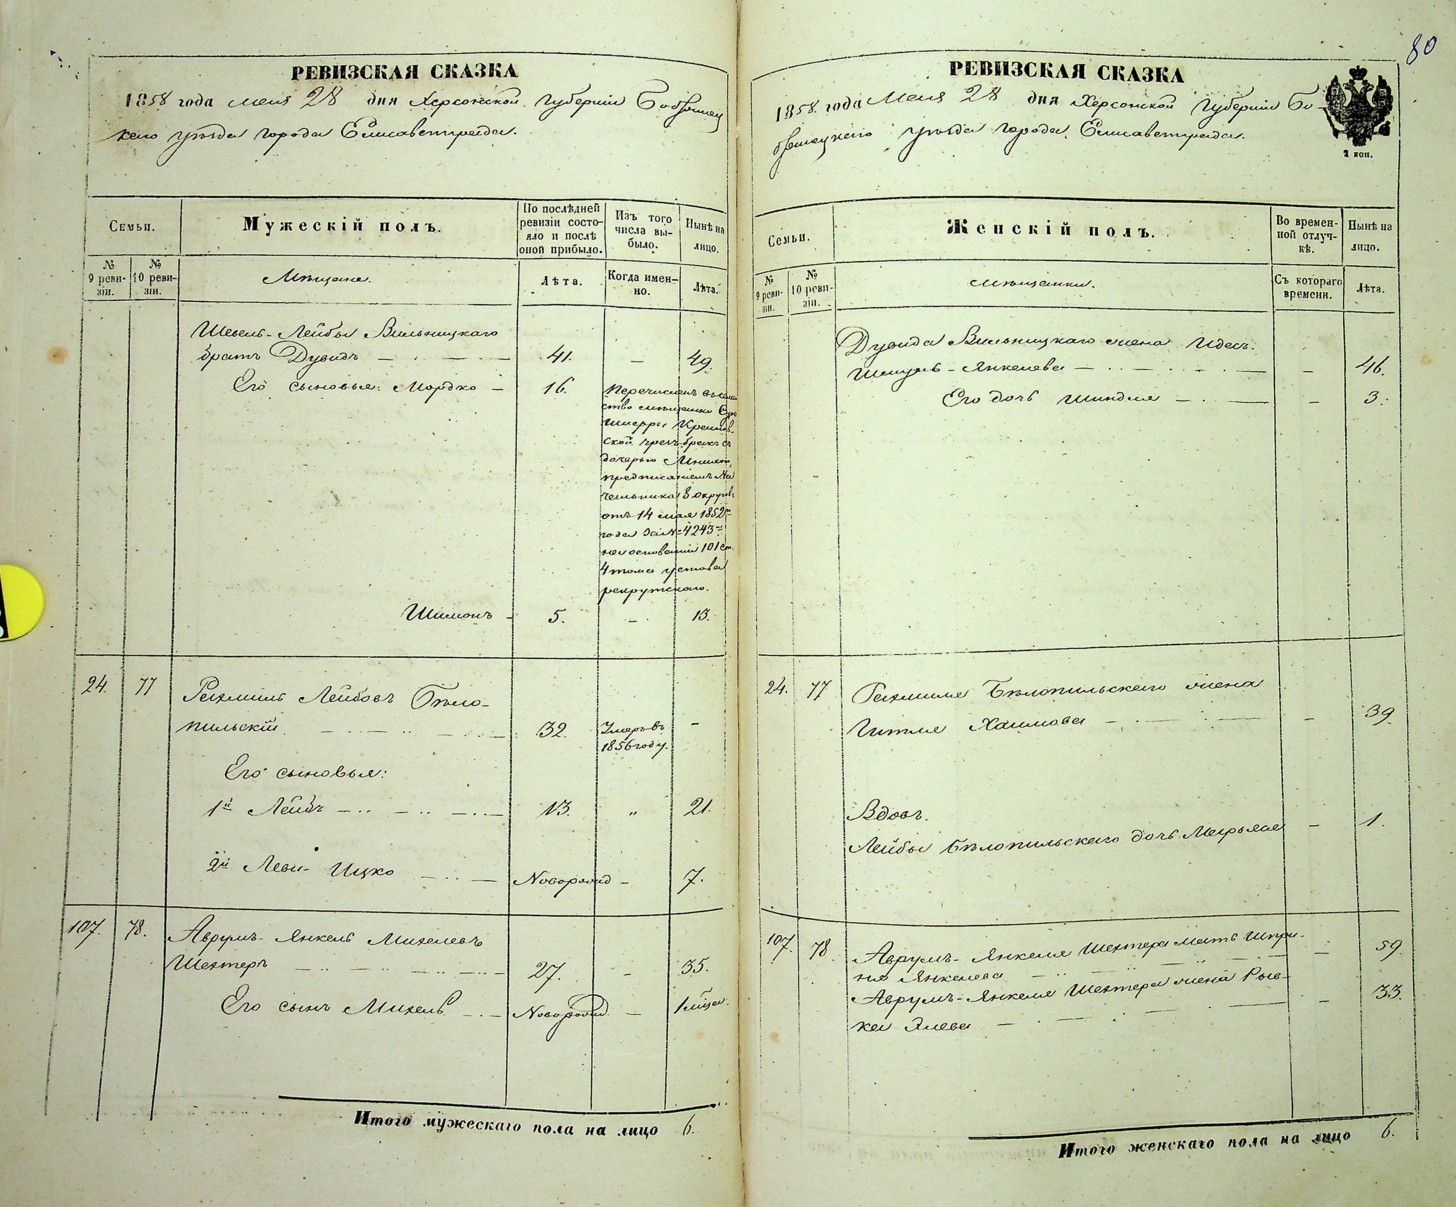 80
РЕВИЗСКАЯ СКАЗКА
1858 года мая 28 дня Херсонской Губерніи Бобринец
каго уѣзда города Елисаветграда.
Семьи.
Мужескій полъ.
По послѣдней
ревизіи состо-
яло и послѣ
оной прибыло.
Изъ того
числа вы-
было.
Нынѣ на
лицо.
№
9 реви-
зіи.
№
10 реви-
зіи.
Мѣщане.
Лѣта.
Когда имен-
но.
Лѣта.
Лейбы Вильницкаго
братъ Дувидъ 41. — 49.
Его сыновья: Мордко — 16. Перечисленъ въ
ство мѣщанки
ской чрезъ бракъ съ
дочерью
предписаніемъ На
чальника 8 округа
отъ 14 мая 1852
года за № 4243
на основаніи 101 ст.
4 тома устава
рекрутскаго.
Шимонъ 5. — 13.
24. 77 Рахмиль Лейбовъ Бѣло-
пильскій 32. Умеръ въ —
1856 году.
Его сыновья:
1й Лейбъ 13. „ 21.
2й Леви-Ицко Новорожд — 7.
107. 78. Аврумъ-Янкель Михелевъ
Шехтеръ 27. — 35.
Его сынъ Михель Новорожд — 1 мѣся.
Итого мужескаго пола на лицо 6.
РЕВИЗСКАЯ СКАЗКА
1858 года Мая 28 дня Херсонской Губерніи Бо-
бринецкаго уѣзда города Елисаветграда.
2 коп.
Семьи.
Женскій полъ.
Во времен-
ной отлуч-
кѣ.
Нынѣ на
лицо.
№
9 реви-
зіи.
№
10 реви-
зіи.
мѣщанки.
Съ котораго
времени.
Лѣта.
Дувида Вильницкаго жена Идесъ-
Янкелева — 46.
Его дочь Шиндля — 3.
24. 77 Рахмиля Бѣлопильскаго жена
Гитля Хаимова — 39.
Вдова.
Лейбы Бѣлопильскаго дочь Марьяся — 1.
107. 78. Аврумъ-Янкеля Шехтера мать Шпри-
на Янкелева — 59.
Аврумъ-Янкеля Шехтера жена Рыв-
ка Элева — 33.
Итого женскаго пола на лицо 6.